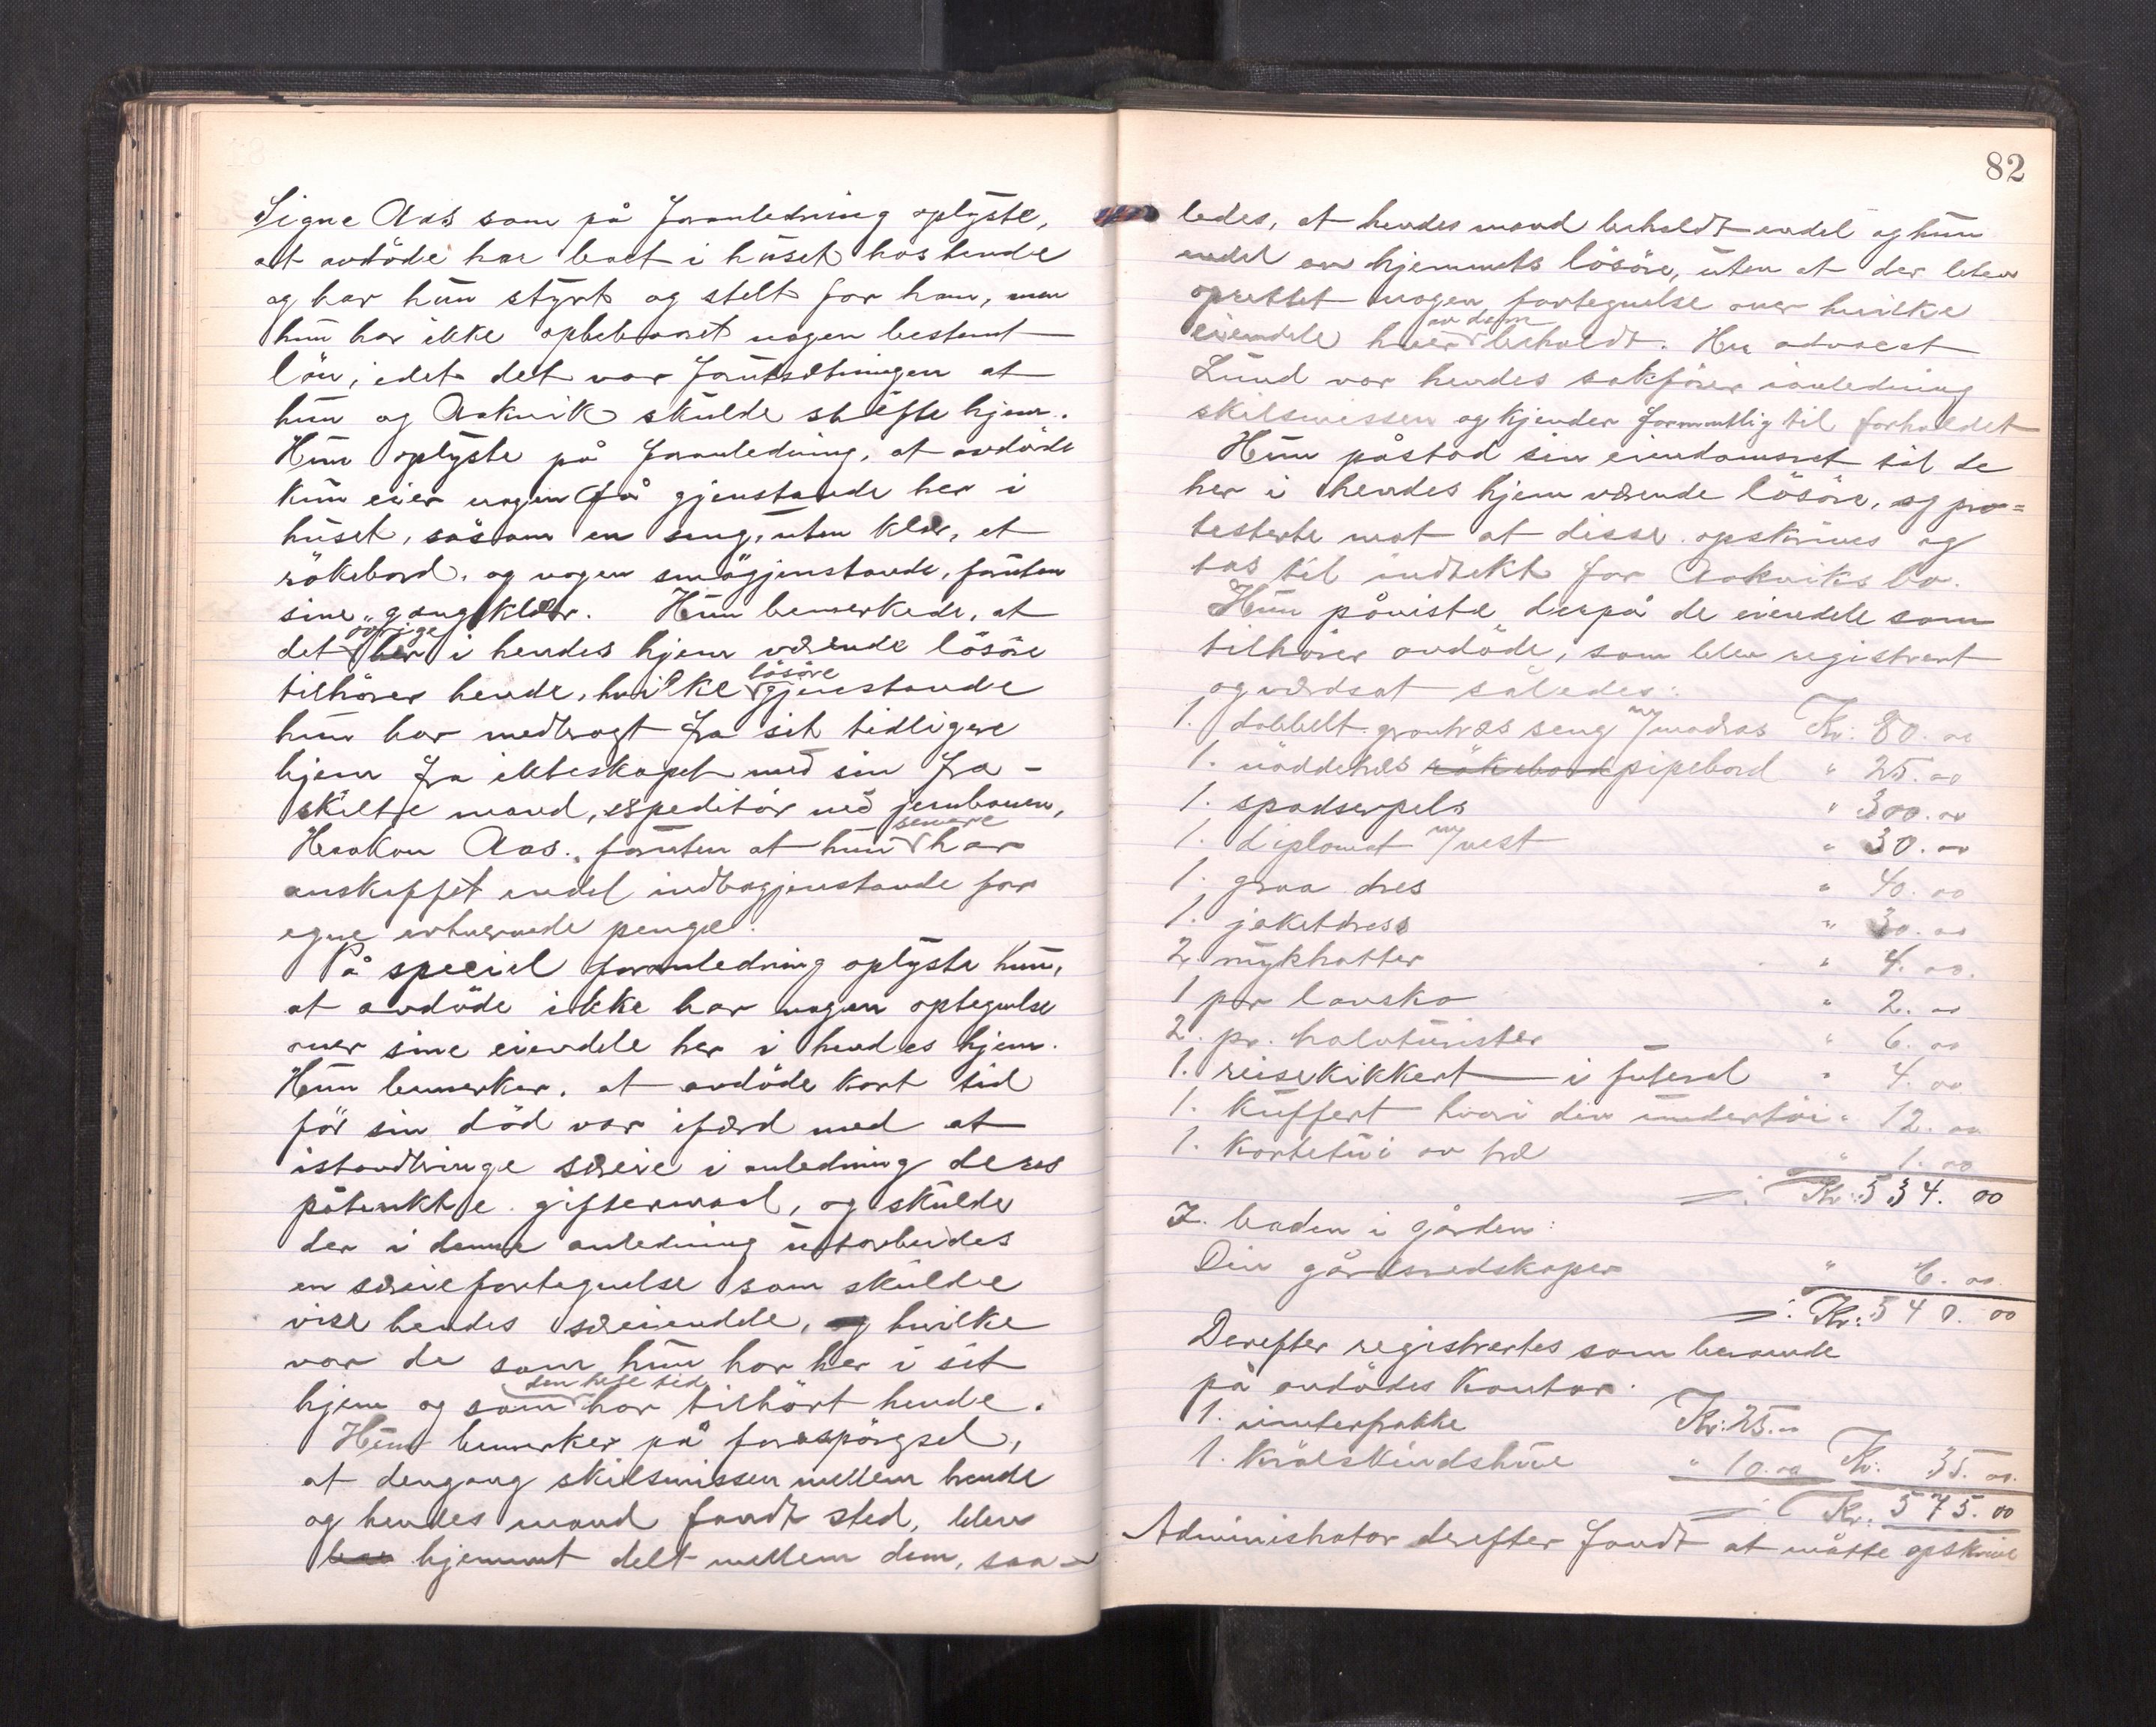 Signe Aas som på foranledning oplyste,
at avdöde har boet i huset hos hende
og har hun styrt og stelt for ham, men
hun har ikke opbebaaret nogen bestemt
lön, idet det var forutsætningen at
hun og Aakvik skulde stifte hjem.
Hun oplyste på foranledning, at avdöde
kun eier nogen få gjenstande her i
huset, såsom en seng, uten klær, et
rökebord, og nogen smågjenstande, foruten
sine gangklær. Hun bemerkede, at
det övrige her i hendes hjem værende lösöre
tilhörer hende, hvilke lösöre gjenstande
hun har medbragt fra sit tidligere
hjem fra ekteskapet med sin fra-
skilte mand, espeditör ved jernbanen,
Haakon Aas, foruten at hun senere har
anskaffet endel indbogjenstande for
egne erhvervede penge.
På speciel foranledning oplyste hun,
at avdöde ikke har nogen optegnelse
over sine eiendele her i hendes hjem.
Hun bemerker, at avdöde kort tid
för sin död var ifærd med at
istandbringe særeie i anledning deres
påtenkte giftermaal, og skulde
der i denne anledning utarbeides
en særeiefortegnelse som skulde
vise hendes særeiendele, og hvilke
var de som hun har her i sit
hjem og som den hele tid har tilhört hende.
Hun bemerker på forespörgsel,
at dengang skilsmissen mellem hende
og hendes mand fandt sted, blev
hjemmet delt mellem dem, saa-
82
ledes, at hendes mand beholdt endel og hun
endel av hjemmets lösöre, uten at der blev
oprettet nogen fortegnelse over hvilke
eiendele hver av dem beholdt. Hr advocat
Lund var hendes sakförer i anledning
skilsmissen og kjender formentlig til forholdet
Hun påstod sin eiendomsret til de
her i hendes hjem værende lösöre, og pro=
testerte mot at disse opskrives og
tas til indtekt for Aakviks bo.
Hun påviste derpå de eiendele som
tilhörer avdöde, som blev registrert
og verdsat således:
1. dobbelt grantræs seng m/madras Kr: 80.00
1. nöddetræs rökebord pipebord " 25.00
1. spadserpels " 300.00
1. diplomat m/vest " 30.00
1. graa dres " 40.00
1. jaketdress " 30.00
2. mykhatter " 4.00.
1 par lavsko " 2.00
2. pr. halvtürister " 6.00
1. reisekikkert i futeral " 4.00
1. Kuffert hvori div undertöi " 12.00
1. Kortetui av træ " 1.00
Kr: 534.00
I boden i gården:
Div gårdsredskaper " 6.00.
Kr: 540.00
Derefter registrertes som beroende
på avdödes Kontor.
1. vinterfrakke Kr: 25.00
1. Kråeskindshue " 10.00 Kr. 35.00.
Kr. 575.00
Administrator derefter fandt at måtte opskrive